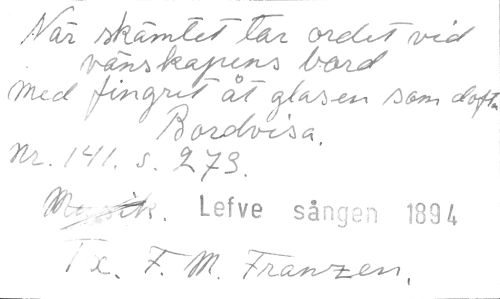 När skämtet tar ordet vid
vänskapens bord
med fingret åt glasen som dofta
Bordvisa.
Nr. 141. s. 273.
Musik. Lefve sången 1894
Tx. F. M. Franzen.